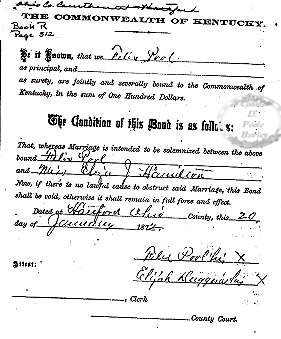 Ohio Co. Courthouse Hartford
THE COMMONWEALTH OF KENTUCKY.
Book R
Page 312
Be it Known, that we Felix Pool
as principal, and
as surety, are jointly and severally bound to the Commonwealth of
Kentucky, in the sum of One Hundred Dollars.
The Condition of this Bond is as follows:
That, whereas Marriage is intended to be solemnized between the above
bound Felix Pool
and Miss Eliza J
Now, if there is no lawful cause to obstruct said Marriage, this Bond
shall be void, otherwise it shall remain in full force and effect.
Dated at Hartford Ohio County, this 20
day of January 187
Felix Pool his X
Attest: Elijah his X
Clerk
County Court.